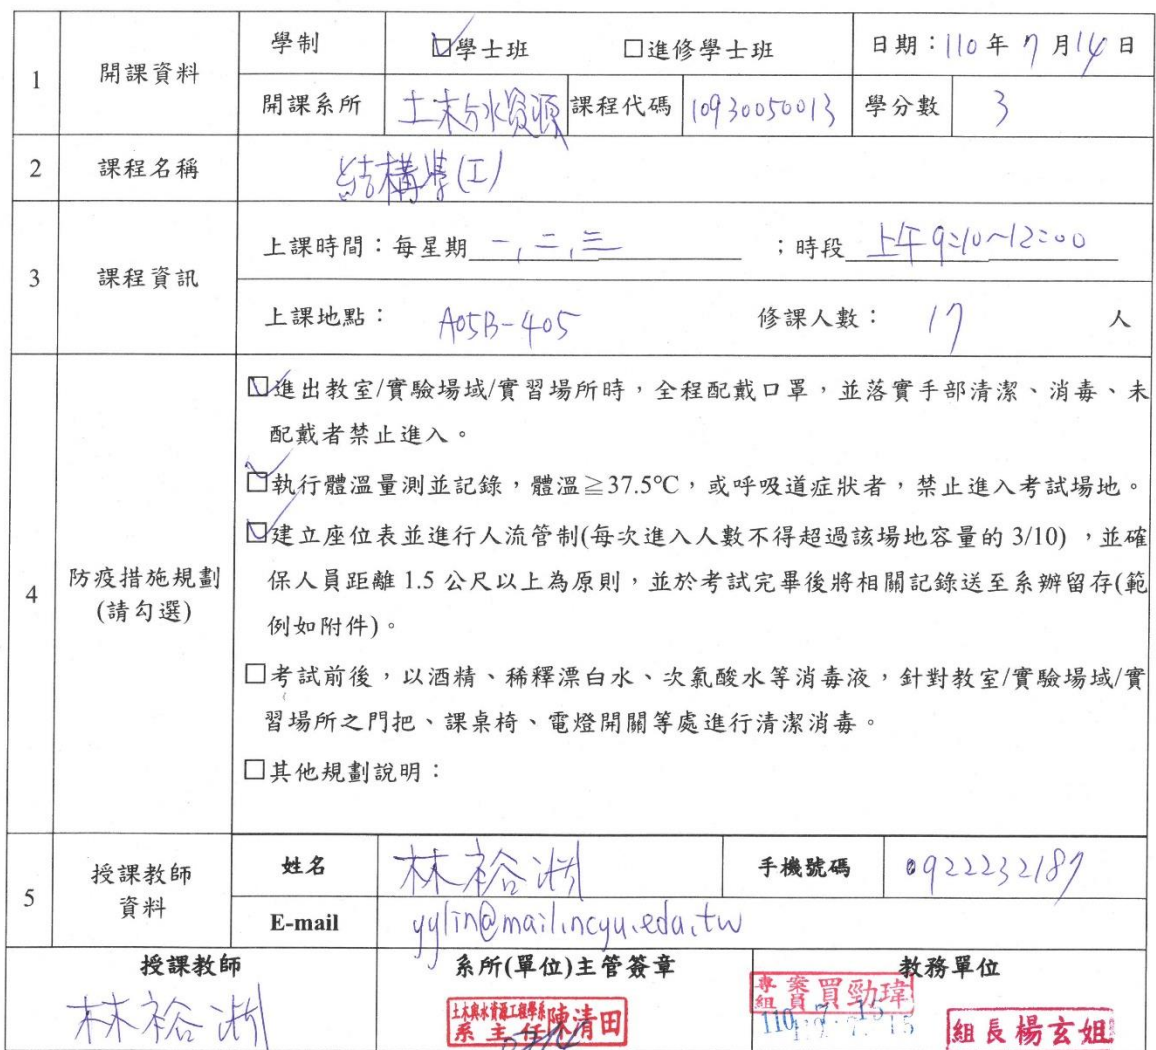 1 開課資料 學制 ☑學士班 □進修學士班 日期：110年7月14日
開課系所 土木與水資源 課程代碼 10930050013 學分數 3
2 課程名稱 結構學(I)
3 課程資訊 上課時間：每星期 一,二,三 ；時段 上午9:10~12:00
上課地點： A05B-405 修課人數： 17 人
4 防疫措施規劃
(請勾選)
☑進出教室/實驗場域/實習場所時，全程配戴口罩，並落實手部清潔、消毒、未
配戴者禁止進入。
☑執行體溫量測並記錄，體溫≧37.5℃，或呼吸道症狀者，禁止進入考試場地。
☑建立座位表並進行人流管制(每次進入人數不得超過該場地容量的 3/10) ，並確
保人員距離 1.5 公尺以上為原則，並於考試完畢後將相關記錄送至系辦留存(範
例如附件)。
□考試前後，以酒精、稀釋漂白水、次氯酸水等消毒液，針對教室/實驗場域/實
習場所之門把、課桌椅、電燈開關等處進行清潔消毒。
□其他規劃說明：
5 授課教師
資料
姓名 林裕淵 手機號碼 0922232187
E-mail yylin@mail.ncyu.edu.tw
授課教師 系所(單位)主管簽章 教務單位
林裕淵
土木與水資源工程學系
系主任陳清田
專案
組員 買勁瑋
110. 7. 15
組長楊玄姐